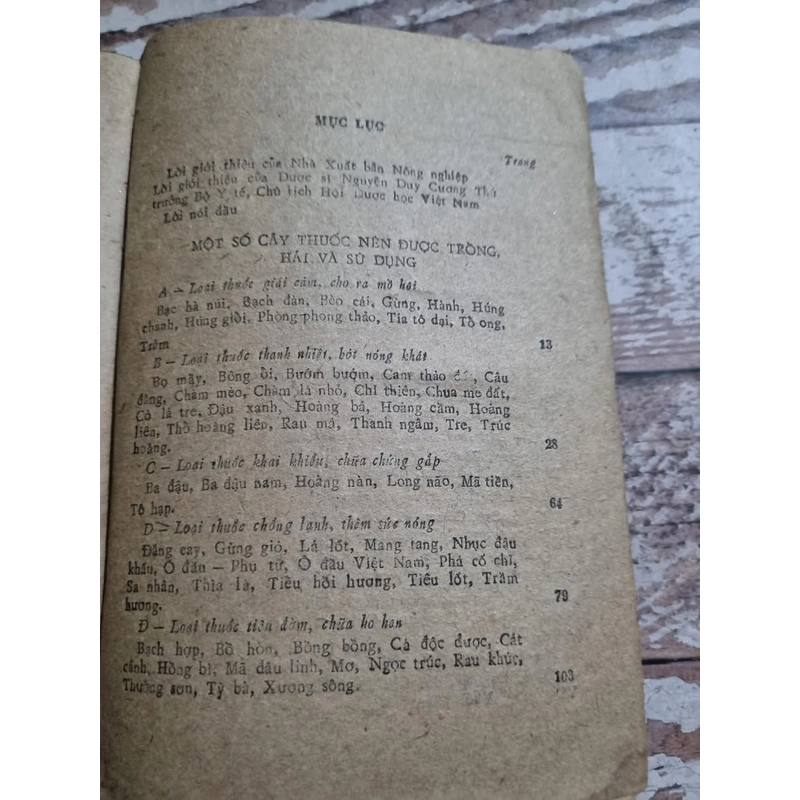 MỤC LỤC
Trang
Lời giới thiệu của Nhà Xuất bản Nông nghiệp
Lời giới thiệu của Dược sĩ Nguyễn Duy Cương Thứ
trưởng Bộ Y tế, Chủ tịch Hội Dược học Việt Nam
Lời nói đầu
MỘT SỐ CÂY THUỐC NÊN ĐƯỢC TRỒNG,
HÁI VÀ SỬ DỤNG
A — Loại thuốc giải cảm, cho ra mồ hôi
Bạc hà núi, Bạch đàn, Bèo cái, Gừng, Hành, Húng
chanh, Húng giồi, Phòng phong thảo, Tía tô dại, Tò ong,
Tràm 13
B — Loại thuốc thanh nhiệt, bớt nóng khát
Bọ mẩy, Bòng bồi, Bướm bướm, Cam thảo đất, Câu
đằng, Chàm mèo, Chàm lá nhỏ, Chỉ thiên, Chua me đất,
Cỏ lá tre, Đậu xanh, Hoàng bá, Hoàng cầm, Hoàng
liên, Thồ hoàng liên, Rau má, Thanh ngâm, Tre, Trúc
hoàng. 28
C — Loại thuốc khai khiếu, chữa chứng gấp
Ba đậu, Ba đậu nam, Hoàng nàn, Long não, Mã tiền,
Tô hạp. 64
D — Loại thuốc chống lạnh, thêm sức nóng
Đắng cay, Gừng gió, Lá lốt, Mang tang, Nhục đậu
khấu, Ô đầu — Phụ tử, Ô đầu Việt Nam, Phá cố chỉ,
Sa nhân, Thìa là, Tiều hồi hương, Tiêu lốt, Trầm
hương. 79
Đ — Loại thuốc tiêu đờm, chữa ho hen
Bạch hợp, Bồ hòn, Bồng bồng, Cà độc dược, Cát
cánh, Hồng bì, Mã đâu linh, Mơ, Ngọc trúc, Rau khúc,
Thường sơn, Tỳ bà, Xương sông. 103